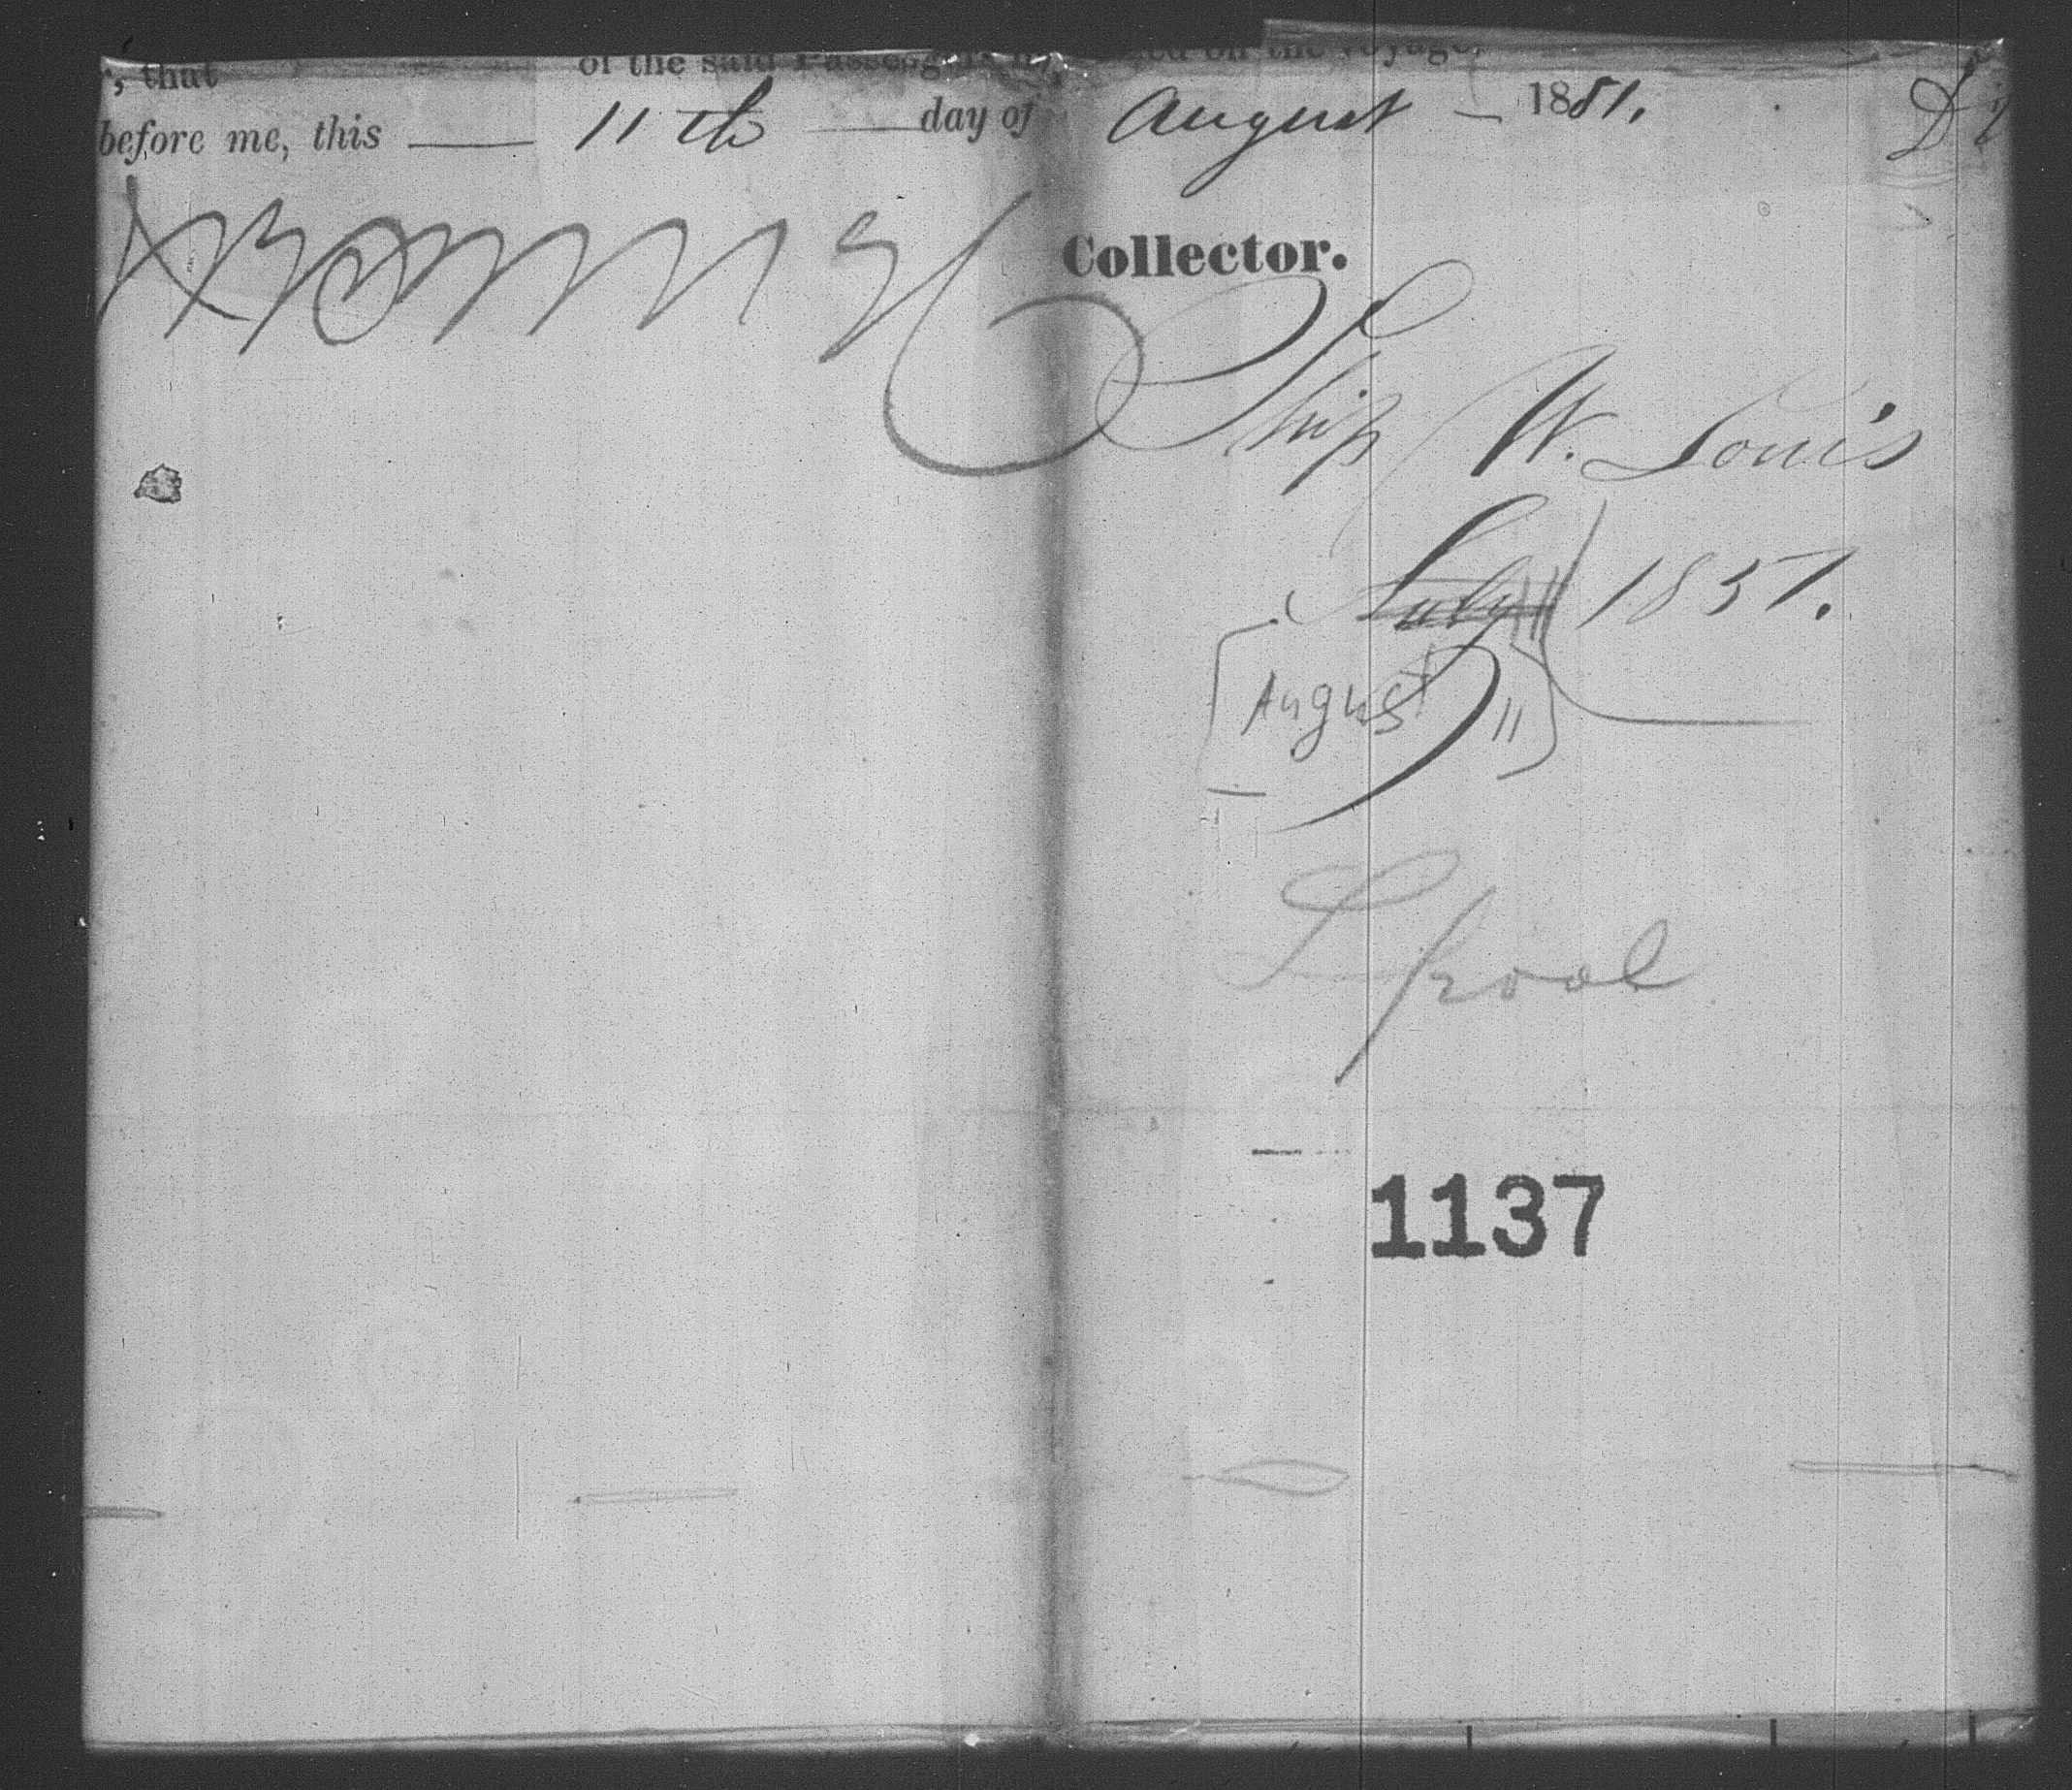 , that of the said Passengers on the voyage.
before me, this 11th day of August 1851.
Collector.
Ship W. Louis
July 11 1851.
[August 11]
L pool
1137